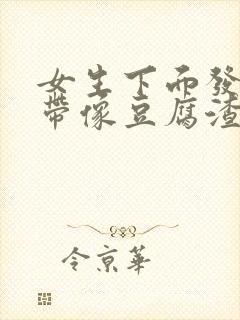 女生下而發
帶像豆腐渣
令京華